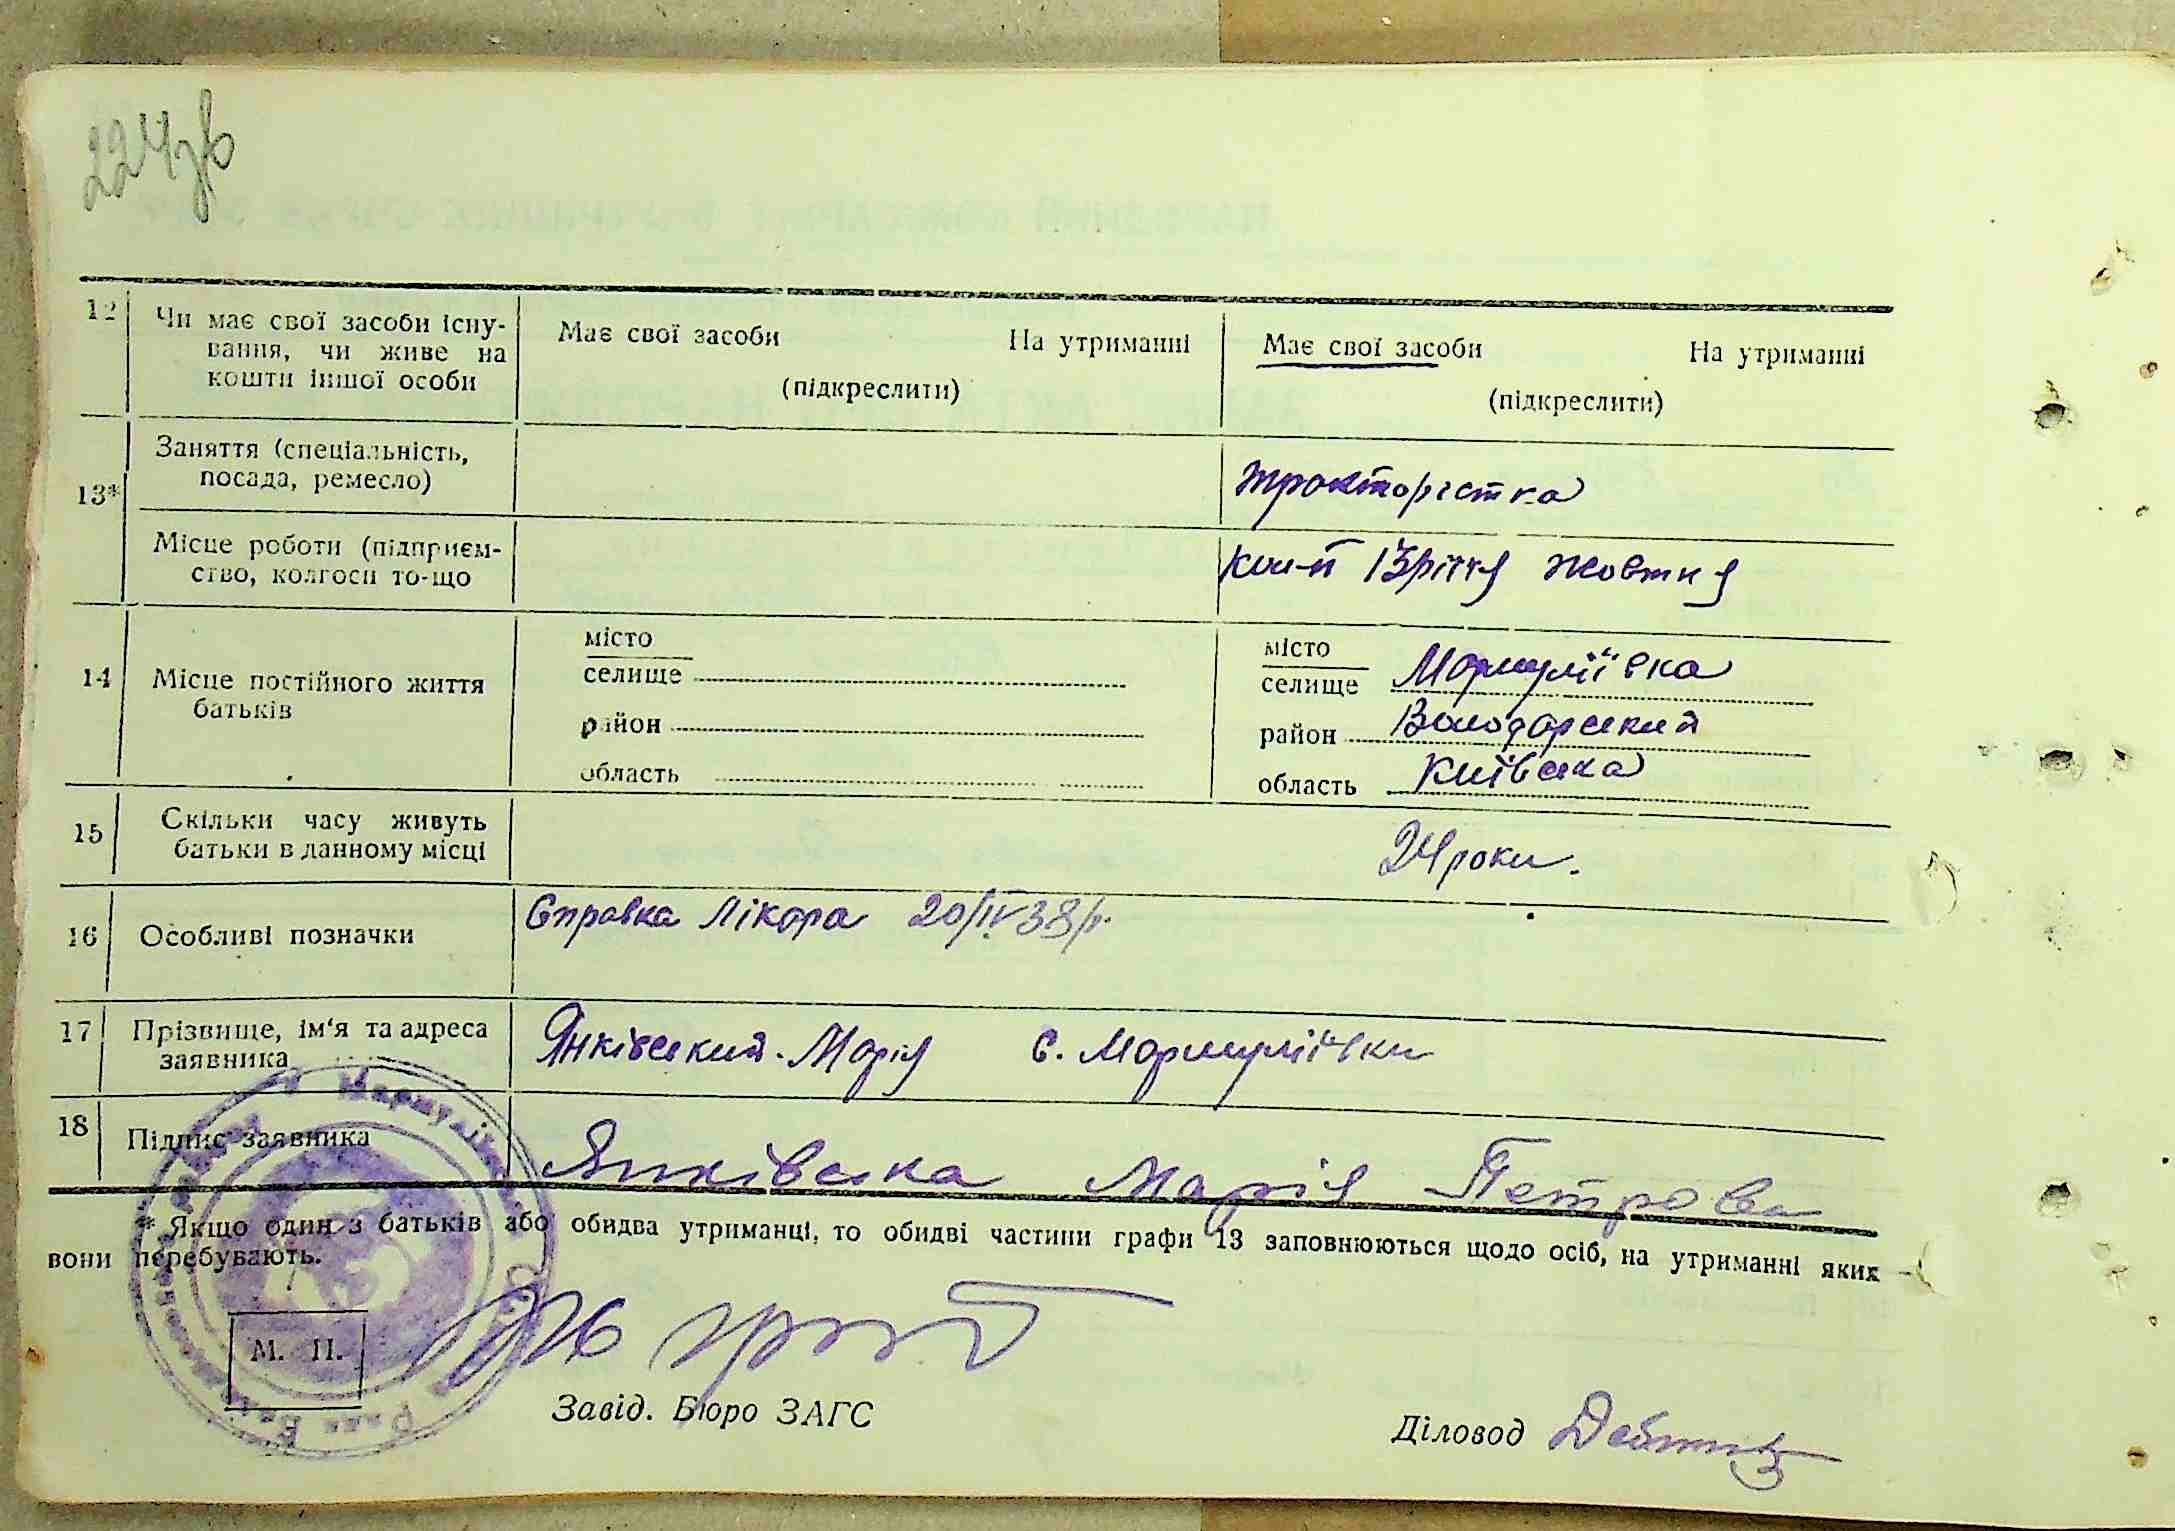 224зв
12 Чи має свої засоби існу-
вання, чи живе на
кошти іншої особи
Має свої засоби На утриманні
(підкреслити)
Має свої засоби На утриманні
(підкреслити)
13* Заняття (спеціальність,
посада, ремесло)
трактористка
Місце роботи (підприєм-
ство, колгосп то-що
13річчя жовтня
14 Місце постійного життя
батьків
місто
селище
район
область
місто
селище Маршуліївка
район Володарський
область Київська
15 Скільки часу живуть
батьки в данному місці
24 роки.
16 Особливі позначки
Справка Лікара 20/IV 38 р.
17 Прізвище, ім'я та адреса
заявника
Янківський Марія с. Маршуліївки
18 Підпис заявника
Янківська Марія Петровн
* Якщо один з батьків або обидва утриманці, то обидві частини графи 13 заповнюються щодо осіб, на утриманні яких
вони перебувають.
М. П.
Завід. Бюро ЗАГС
Діловод